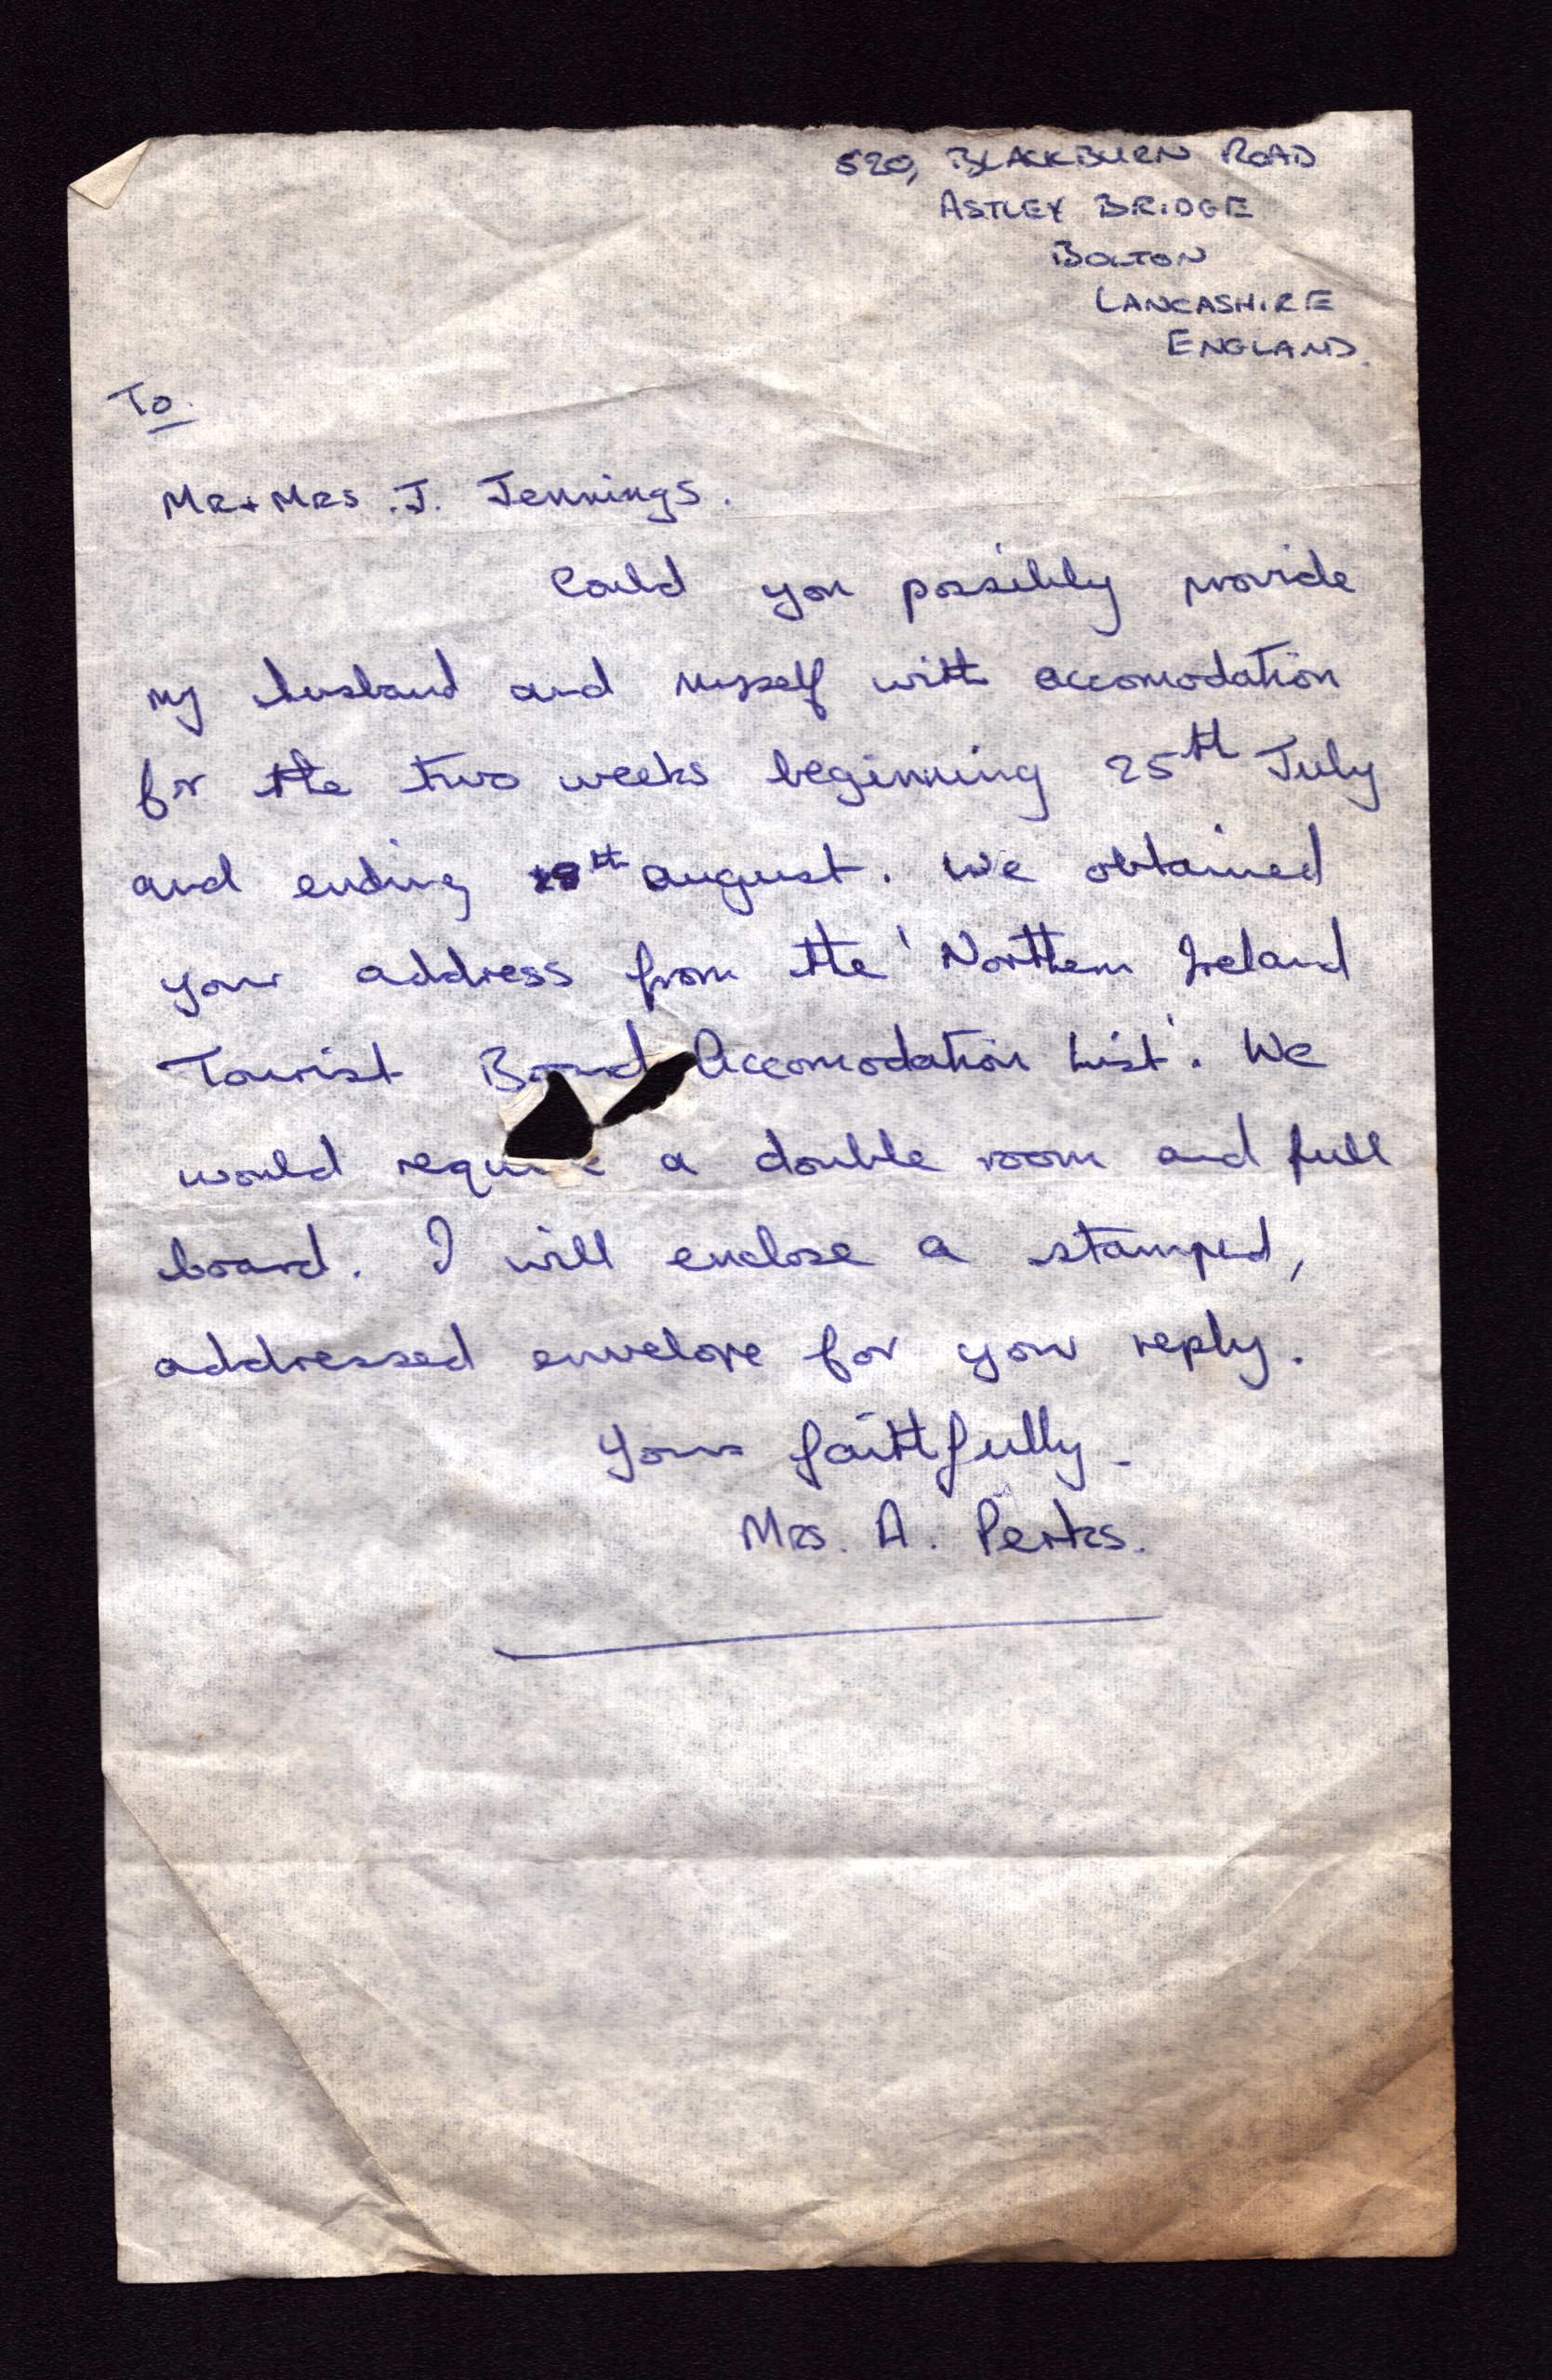 520, BLACKBURN ROAD
ASTLEY BRIDGE
BOLTON
LANCASHIRE
ENGLAND.
To.
MR + MRS .J. Jennings.
Could you possibly provide
my husband and myself with accomodation
for the two weeks beginning 25th July
and ending august. We obtained
your address from the 'Northern Ireland
Tourist Board Accomodation List'. We
would require a double room and full
board. I will enclose a stamped,
addressed envelope for your reply.
Yours faithfully -
MRS. A. Perks.